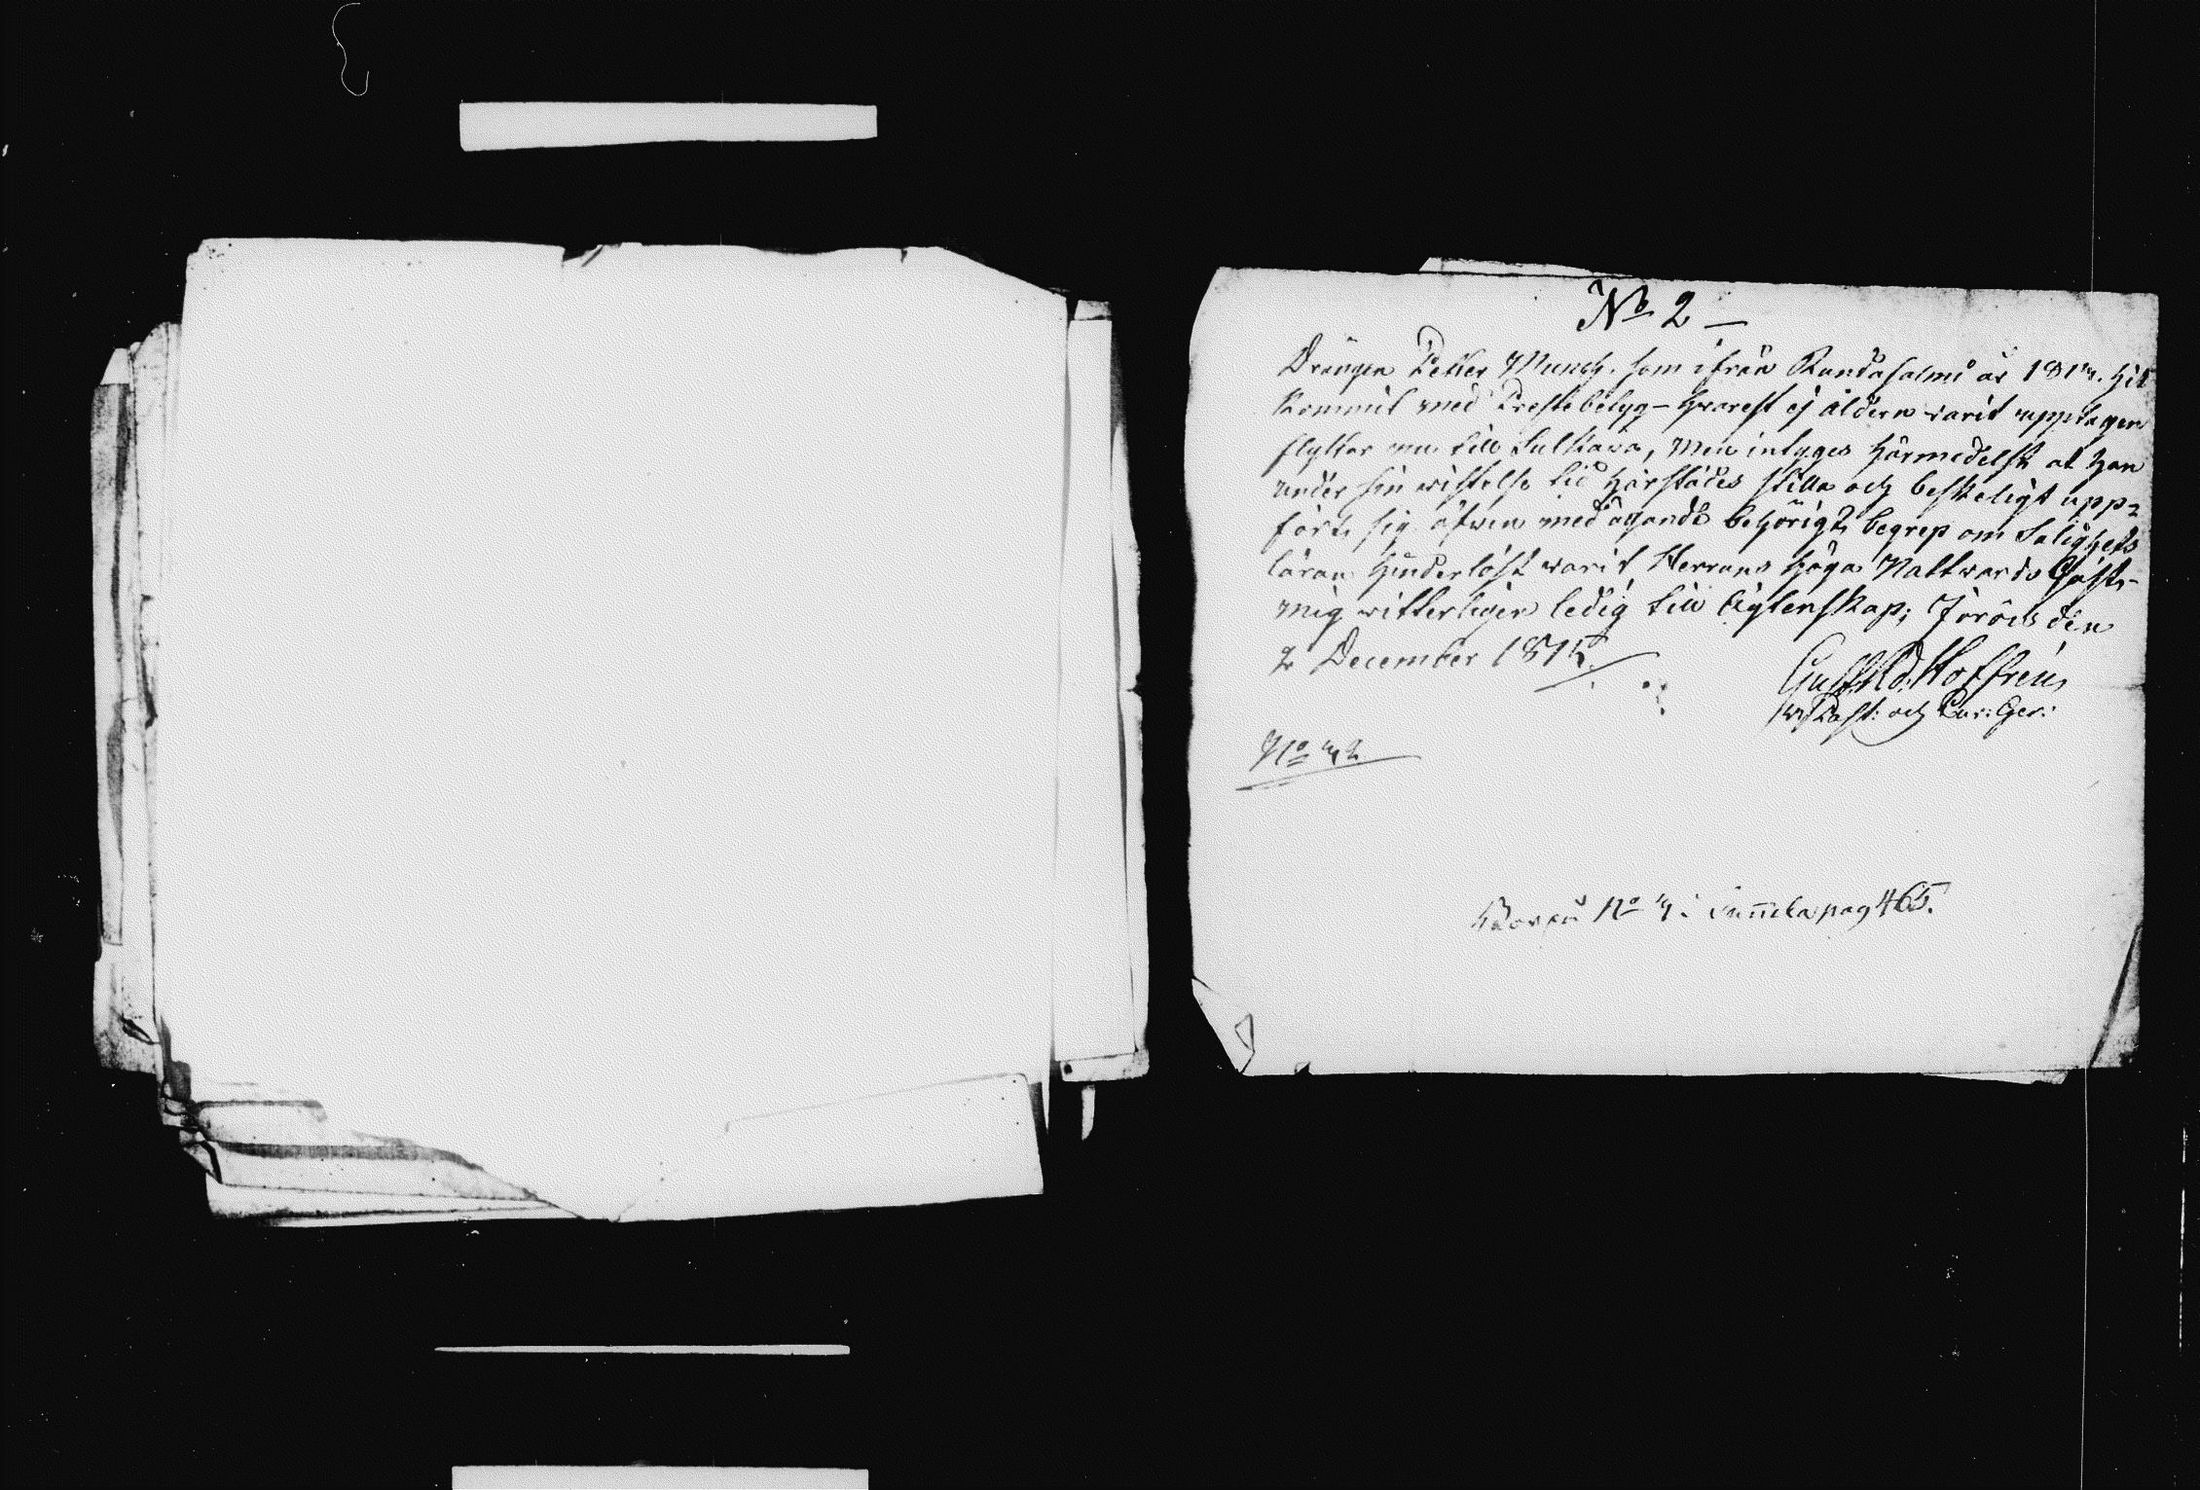 No 2 —
Drängen Petter Munck som ifrån Randasalmi år 1814 hit
kommit med Prestebetyg – hvarest ej åldern varit upptagen
flyttar nu till Sulkava, Men intyges härmedelst at han
under sin wistelse tid härstädes stilla och beskeligt upp=
fört sig, äfwen med ägande behörigt begrep om Salighets
läran hinderlöst warit Herrans höga Nattwards Gäst –
mig witterligen ledig till Ägtenskap; Jorois den
2 December 1815.
Gust. Ad. Hoffrén,
Past: och
No 42
No 4 pag 465.